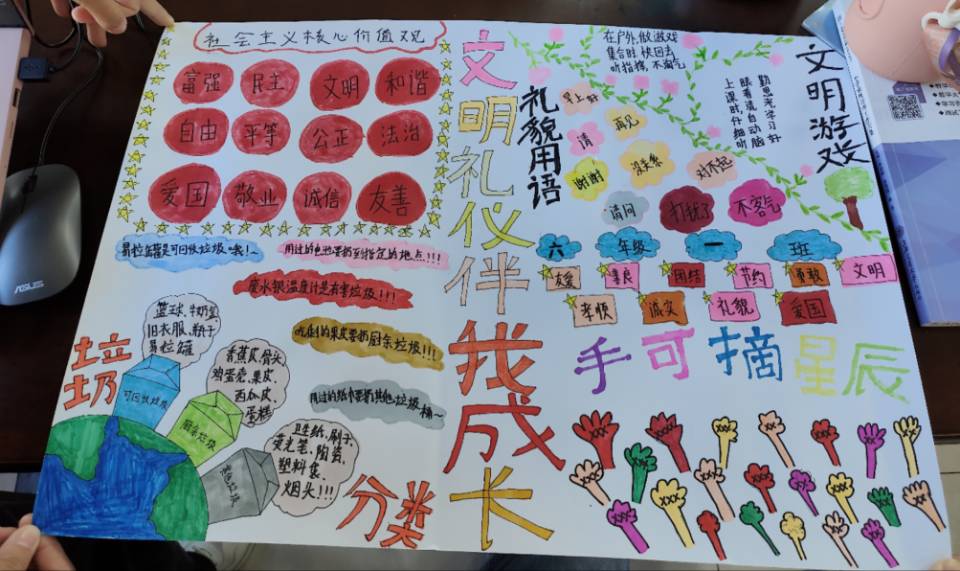 社会主义核心价值观
富强 民主 文明 和谐
自由 平等 公正 法治
爱国 敬业 诚信 友善
易拉罐是可回收垃圾哦！
用过的电池要扔到指定的地点!!!
废水银温度计是有害垃圾!!!
吃剩的果皮要扔厨余垃圾!!!
用过的纸巾要扔其他垃圾桶～
垃圾
分类
篮球、牛奶盒
旧衣服、瓶子
易拉罐
香蕉皮、骨头、
鸡蛋壳、果皮、
西瓜皮、
蛋糕
卫生纸、刷子、
荧光笔、陶瓷、
塑料袋、
烟头!!!
可回收垃圾
厨余垃圾
其他垃圾
文明礼仪伴我成长
礼貌用语
早上好
请
再见
谢谢
没关系
对不起
请问
打扰了
不客气
在户外，做游戏
集合时，快回去
听指挥，不淘气
文明游戏
上课时，仔细听
眼看清，自动脑
勤思考，学习好
六 年级 一 班
友爱 善良 团结 节约 勇敢 文明
孝顺 诚实 礼貌 爱国
手可摘星辰
ASUS